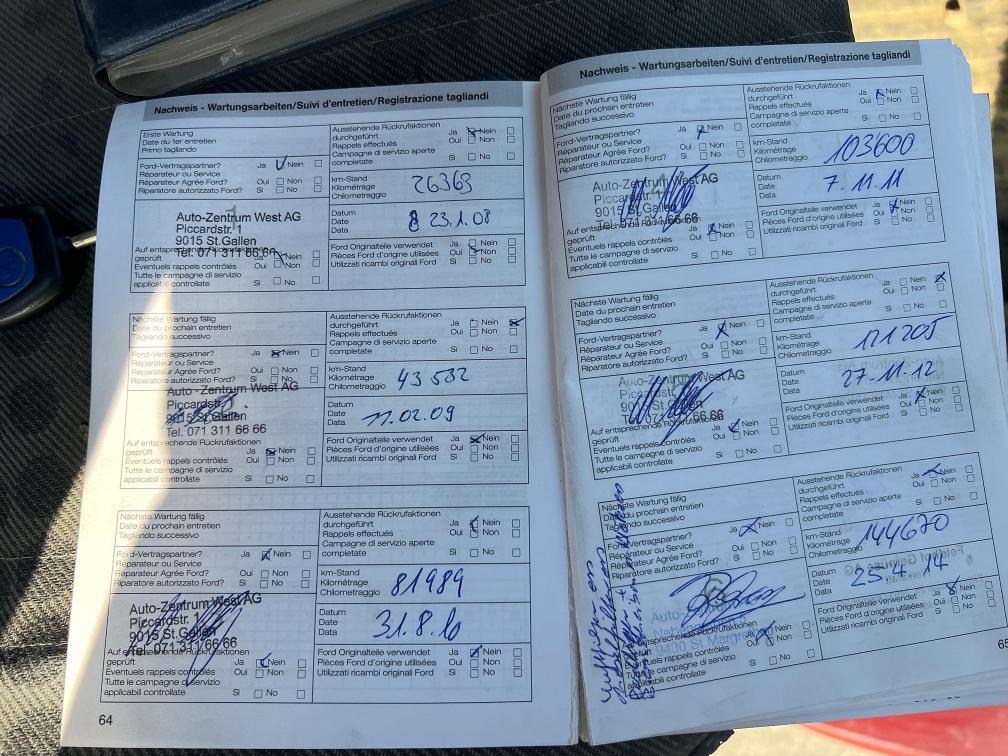 Nachweis - Wartungsarbeiten/Suivi d'entretien/Registrazione tagliandi
Erste Wartung
Date du 1er entretien
Primo tagliando
Ausstehende Rückrufaktionen
durchgeführt Ja Nein
Rappels effectués Oui Non
Campagne di servizio aperte
completate Si No
Ford-Vertragspartner? Ja Nein
Réparateur ou Service
Réparateur Agrée Ford? Oui Non
Riparatore autorizzato Ford? Si No
km-Stand
Kilométrage
Chilometraggio
26369
Auto-Zentrum West AG
Piccardstr. 1
9015 St.Gallen
Tel. 071 311 66 66
Datum
Date
Data
23.1.08
Auf entsprechende Rückrufaktionen
geprüft Ja Nein
Eventuels rappels contrôlés Oui Non
Tutte le campagne di servizio
applicabili controllate Si No
Ford Originalteile verwendet Ja Nein
Pièces Ford d'origine utilisées Oui Non
Utilizzati ricambi originali Ford Si No
Nächste Wartung fällig
Date du prochain entretien
Tagliando successivo
Ausstehende Rückrufaktionen
durchgeführt Ja Nein
Rappels effectués Oui Non
Campagne di servizio aperte
completate Si No
Ford-Vertragspartner? Ja Nein
Réparateur ou Service
Réparateur Agrée Ford? Oui Non
Riparatore autorizzato Ford? Si No
km-Stand
Kilométrage
Chilometraggio
43532
Auto-Zentrum West AG
Piccardstr. 1
9015 St.Gallen
Tel. 071 311 66 66
Datum
Date
Data
11.02.09
Auf entsprechende Rückrufaktionen
geprüft Ja Nein
Eventuels rappels contrôlés Oui Non
Tutte le campagne di servizio
applicabili controllate Si No
Ford Originalteile verwendet Ja Nein
Pièces Ford d'origine utilisées Oui Non
Utilizzati ricambi originali Ford Si No
Nächste Wartung fällig
Date du prochain entretien
Tagliando successivo
Ausstehende Rückrufaktionen
durchgeführt Ja Nein
Rappels effectués Oui Non
Campagne di servizio aperte
completate Si No
Ford-Vertragspartner? Ja Nein
Réparateur ou Service
Réparateur Agrée Ford? Oui Non
Riparatore autorizzato Ford? Si No
km-Stand
Kilométrage
Chilometraggio
81989
Auto-Zentrum West AG
Piccardstr. 1
9015 St.Gallen
Tel. 071 311 66 66
Datum
Date
Data
31.8.10
Auf entsprechende Rückrufaktionen
geprüft Ja Nein
Eventuels rappels contrôlés Oui Non
Tutte le campagne di servizio
applicabili controllate Si No
Ford Originalteile verwendet Ja Nein
Pièces Ford d'origine utilisées Oui Non
Utilizzati ricambi originali Ford Si No
64
Nachweis - Wartungsarbeiten/Suivi d'entretien/Registrazione tagliandi
Nächste Wartung fällig
Date du prochain entretien
Tagliando successivo
Ausstehende Rückrufaktionen
durchgeführt Ja Nein
Rappels effectués Oui Non
Campagne di servizio aperte
completate Si No
Ford-Vertragspartner? Ja Nein
Réparateur ou Service
Réparateur Agrée Ford? Oui Non
Riparatore autorizzato Ford? Si No
km-Stand
Kilométrage
Chilometraggio
103600
Auto-Zentrum West AG
Piccardstr. 1
9015 St.Gallen
Tel. 071 311 66 66
Datum
Date
Data
7.11.11
Auf entsprechende Rückrufaktionen
geprüft Ja Nein
Eventuels rappels contrôlés Oui Non
Tutte le campagne di servizio
applicabili controllate Si No
Ford Originalteile verwendet Ja Nein
Pièces Ford d'origine utilisées Oui Non
Utilizzati ricambi originali Ford Si No
Nächste Wartung fällig
Date du prochain entretien
Tagliando successivo
Ausstehende Rückrufaktionen
durchgeführt Ja Nein
Rappels effectués Oui Non
Campagne di servizio aperte
completate Si No
Ford-Vertragspartner? Ja Nein
Réparateur ou Service
Réparateur Agrée Ford? Oui Non
Riparatore autorizzato Ford? Si No
km-Stand
Kilométrage
Chilometraggio
121205
Auto-Zentrum West AG
Piccardstr. 1
9015 St.Gallen
Tel. 071 311 66 66
Datum
Date
Data
27.11.12
Auf entsprechende Rückrufaktionen
geprüft Ja Nein
Eventuels rappels contrôlés Oui Non
Tutte le campagne di servizio
applicabili controllate Si No
Ford Originalteile verwendet Ja Nein
Pièces Ford d'origine utilisées Oui Non
Utilizzati ricambi originali Ford Si No
Nächste Wartung fällig
Date du prochain entretien
Tagliando successivo
Ausstehende Rückrufaktionen
durchgeführt Ja Nein
Rappels effectués Oui Non
Campagne di servizio aperte
completate Si No
Ford-Vertragspartner? Ja Nein
Réparateur ou Service
Réparateur Agrée Ford? Oui Non
Riparatore autorizzato Ford? Si No
km-Stand
Kilométrage
Chilometraggio
144670
9430 St. Margrethen
Datum
Date
Data
25 4 14
Auf entsprechende Rückrufaktionen
geprüft Ja Nein
Eventuels rappels contrôlés Oui Non
Tutte le campagne di servizio
applicabili controllate Si No
Ford Originalteile verwendet Ja Nein
Pièces Ford d'origine utilisées Oui Non
Utilizzati ricambi originali Ford Si No
65